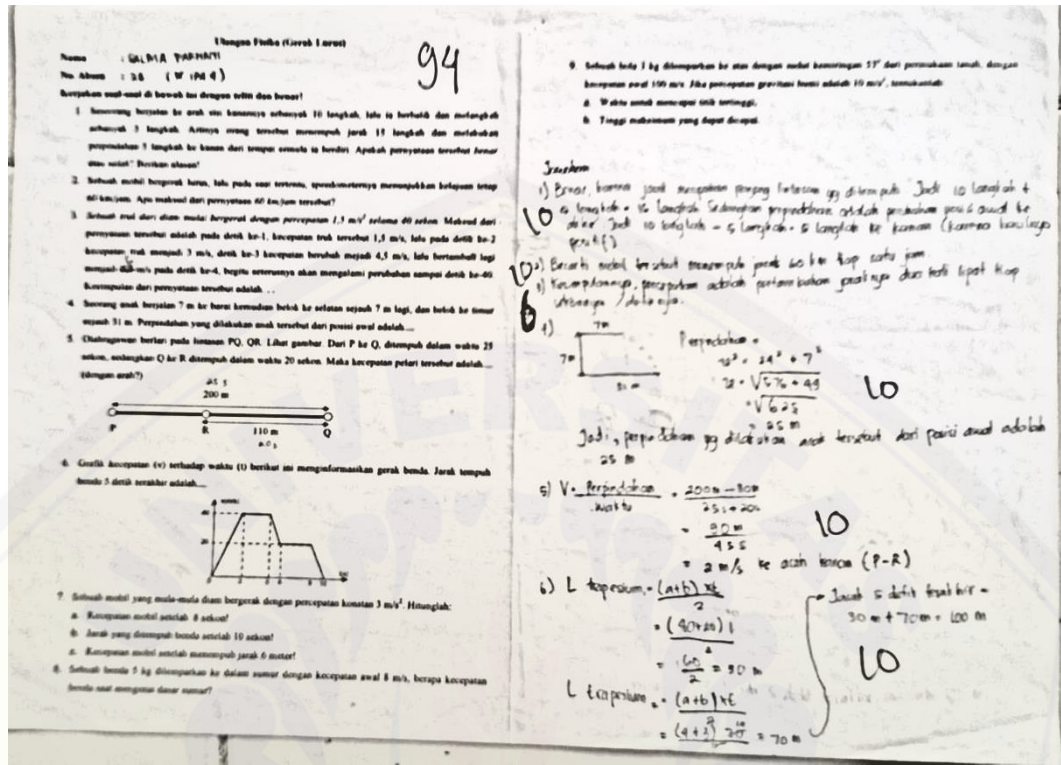 Ulangan Fisika (Gerak Lurus)
94
Nama : SALMA
No. Absen : 28
Kerjakan soal-soal di bawah ini dengan teliti dan benar!
1. Seseorang berjalan ke arah sisi kanannya sebanyak 10 langkah, lalu ia berbalik dan melangkah
sebanyak 5 langkah. Artinya orang tersebut menempuh jarak 15 langkah dan melakukan
perpindahan 5 langkah ke kanan dari tempat semula ia berdiri. Apakah pernyataan tersebut benar
atau salah? Berikan alasan!
2. Sebuah mobil bergerak lurus, lalu pada saat tertentu, speedometernya menunjukkan kelajuan tetap
60 km/jam. Apa maksud dari pernyataan 60 km/jam tersebut?
3. Sebuah truk dari diam mulai bergerak dengan percepatan 1,5 m/s² selama 40 sekon. Maksud dari
pernyataan tersebut adalah pada detik ke-1, kecepatan truk tersebut 1,5 m/s, lalu pada detik ke-2
kecepatan truk menjadi 3 m/s, detik ke-3 kecepatan berubah mejadi 4,5 m/s, lalu bertambah lagi
menjadi m/s pada detik ke-4, begitu seterusnya akan mengalami perubahan sampai detik ke-40.
Kesimpulan dari pernyataan tersebut adalah ...
4. Seorang anak berjalan 7 m ke barat kemudian belok ke selatan sejauh 7 m lagi, dan belok ke timur
sejauh 31 m. Perpindahan yang dilakukan anak tersebut dari posisi awal adalah....
5. Olahragawan berlari pada lintasan PQ, QR. Lihat gambar. Dari P ke Q, ditempuh dalam waktu 25
sekon, sedangkan Q ke R ditempuh dalam waktu 20 sekon. Maka kecepatan pelari tersebut adalah....
(dengan arah?)
25 s
200 m
P R Q
110 m
20 s
6. Grafik kecepatan (v) terhadap waktu (t) berikut ini menginformasikan gerak benda. Jarak tempuh
benda 5 detik terakhir adalah....
40
20
7. Sebuah mobil yang mula-mula diam bergerak dengan percepatan konstan 3 m/s². Hitunglah:
a. Kecepatan mobil setelah 8 sekon!
b. Jarak yang ditempuh benda setelah 10 sekon!
c. Kecepatan mobil setelah menempuh jarak 6 meter!
8. Sebuah benda 5 kg dilemparkan ke dalam sumur dengan kecepatan awal 8 m/s, berapa kecepatan
benda saat mengenai dasar sumur?
9. Sebuah bola 1 kg dilemparkan ke atas dengan sudut kemiringan dari permukaan tanah, dengan
kecepatan awal 100 m/s. Jika percepatan gravitasi bumi adalah 10 m/s², tentukanlah:
a. Waktu untuk mencapai titik tertinggi,
b. Tinggi maksimum yang dapat dicapai.
Jawaban
1) Benar, karena jarak merupakan panjang lintasan yg ditempuh. Jadi 10 langkah +
5 langkah = 15 langkah. Sedangkan perpindahan adalah perubahan posisi awal ke
akhir. Jadi 10 langkah - 5 langkah = 5 langkah ke kanan (karena hasilnya
positif)
10
2) Berarti mobil tersebut menempuh jarak 60 km tiap satu jam.
10
3) Kesimpulannya, percepatan adalah pertambahan jaraknya dua kali lipat tiap
6
4) 7m
7m
31 m
Perpindahan =
= 24² + 7²
= √576 + 49
= √625
= 25 m
10
Jadi, perpindahan yg dilakukan anak tersebut dari posisi awal adalah
25 m
5) V = Perpindahan / waktu = 200m - / 25s + 20s
= 90 m / 45 s
= 2 m/s ke arah kanan (P-R)
10
6) L trapesium = (a+b) xt / 2
= (40+20) 1 / 2
= 60 / 2 = 30 m
L trapesium = (a+b) xt / 2
= (4+3) 20 / 2 = 70 m
Jarak 5 detik terakhir =
30 m + 70 m = 100 m
10